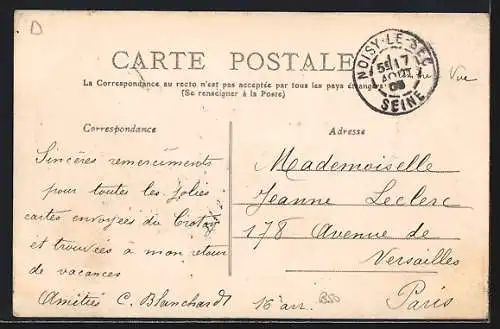 D
CARTE POSTALE
La Correspondance au recto n'est pas acceptée par tous les pays étrangers
(Se renseigner à la Poste)
NOISY-LE-SEC
17
AOUT
SEINE
Vu
Vue
Correspondance
Sincères remerciments
pour toutes les jolies
cartes envoyées du Crotoy
et trouvées à mon retour
de vacances
Amitiés C. Blanchard
Adresse
Mademoiselle
Jeanne Leclerc
178 Avenue de
Versailles
Paris
16 arr.